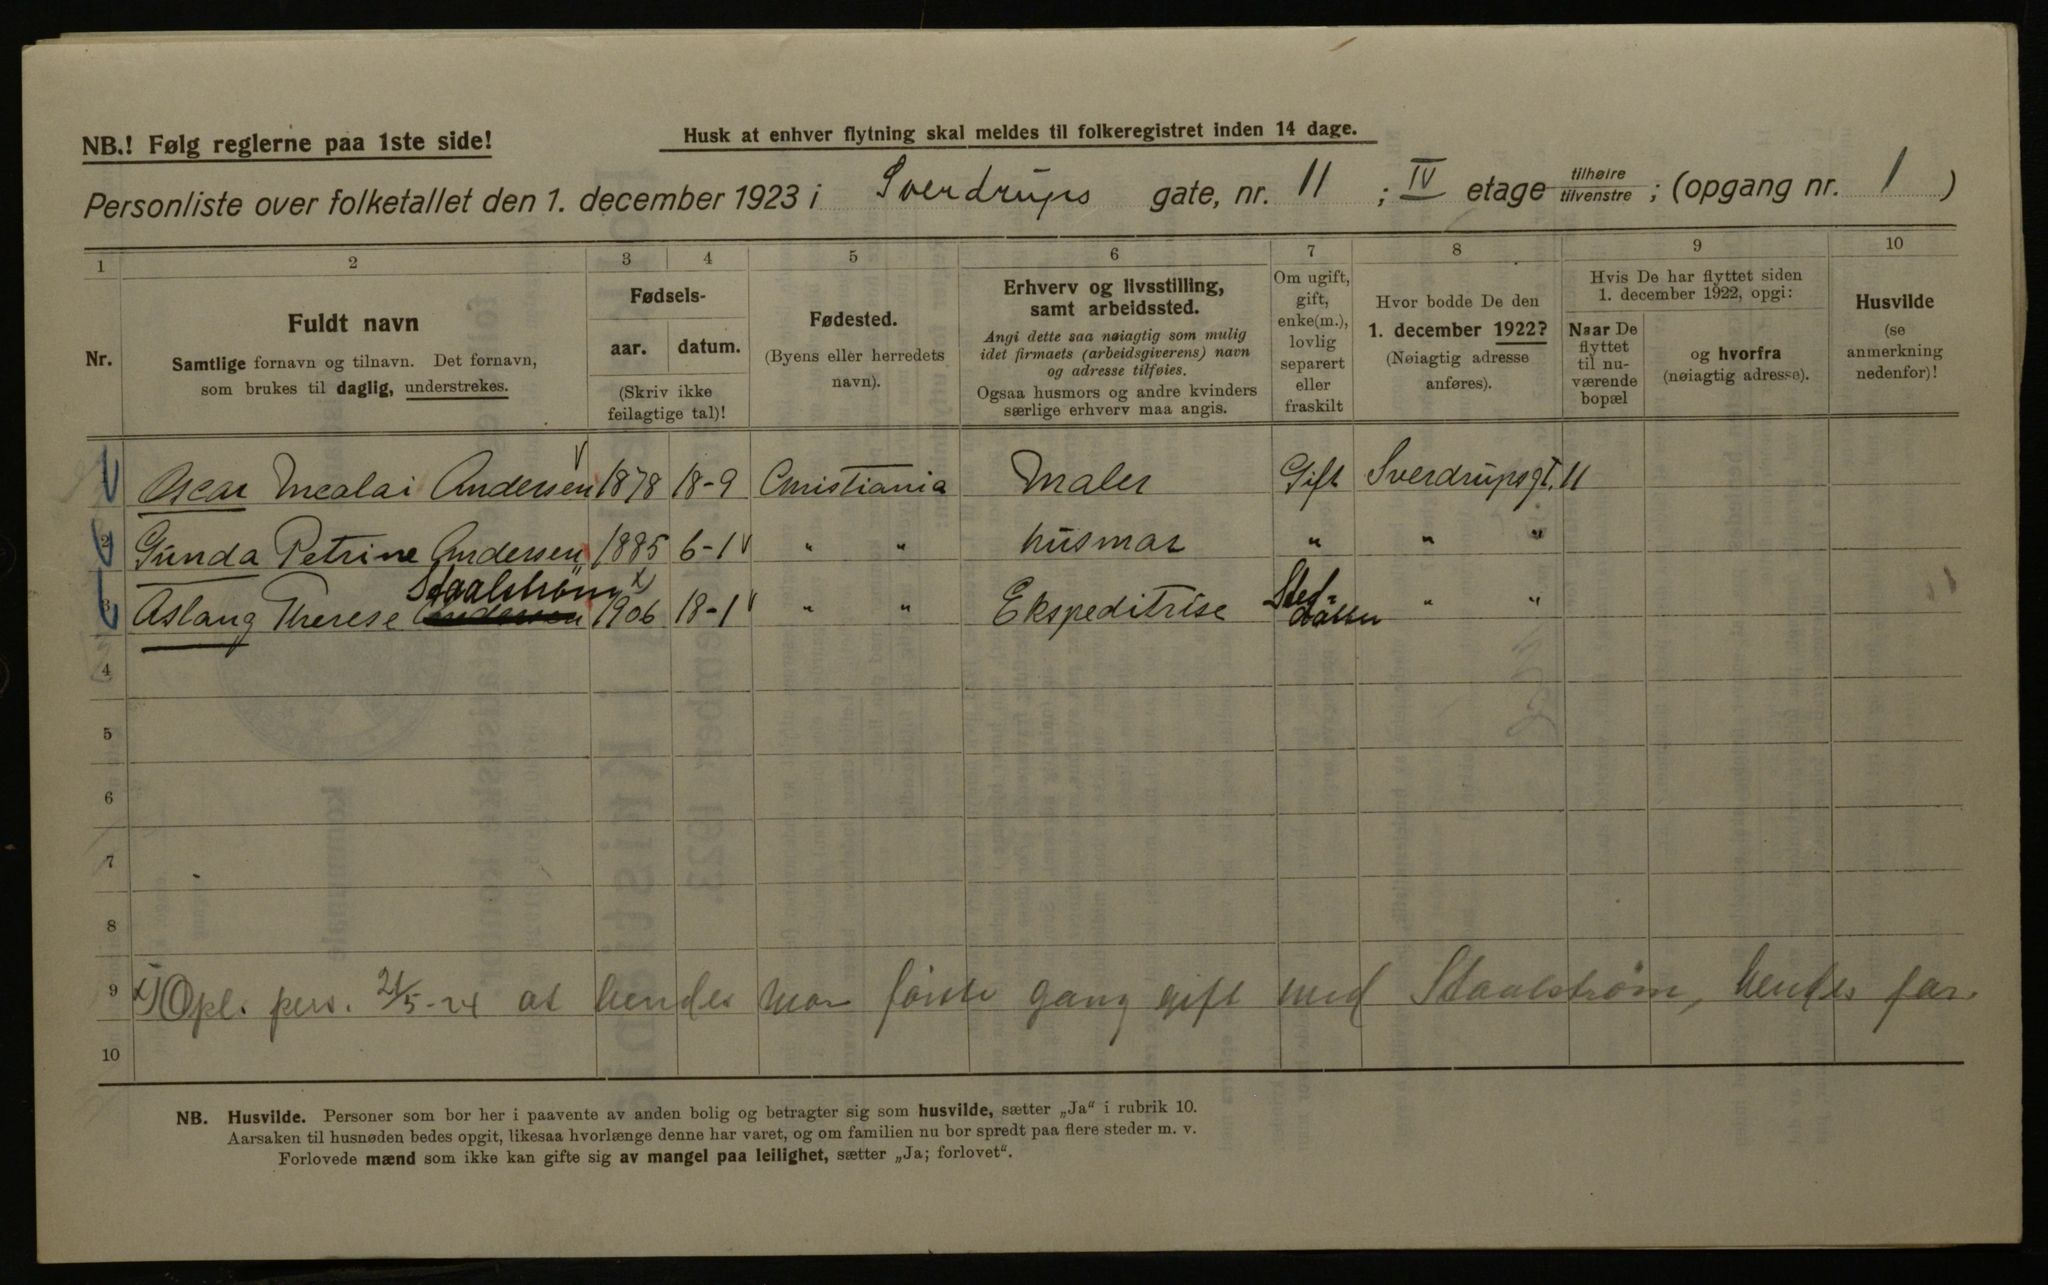 NB.! Følg reglerne paa 1ste side!
Husk at enhver flytning skal meldes til folkeregistret inden 14 dage.
Personliste over folketallet den 1. december 1923 i Sverdrups gate, nr. 11 ; IV etage tilhøire tilvenstre ; (opgang nr. 1 )
1 2 3 4 5 6 7 8 9 10
Nr.
Fuldt navn
Samtlige fornavn og tilnavn. Det fornavn,
som brukes til daglig, understrekes.
Fødsels-
aar. datum.
(Skriv ikke
feilagtige tal)!
Fødested.
(Byens eller herredets
navn).
Erhverv og livsstilling,
samt arbeidssted.
Angi dette saa nøiagtig som mulig
idet firmaets (arbeidsgiverens) navn
og adresse tilføies.
Ogsaa husmors og andre kvinders
særlige erhverv maa angis.
Om ugift,
gift,
enke(m.),
lovlig
separert
eller
fraskilt
Hvor bodde De den
1. december 1922?
(Nøiagtig adresse
anføres).
Hvis De har flyttet siden
1. december 1922, opgi:
Naar De
flyttet
til nu-
værende
bopæl
og hvorfra
(nøiagtig adresse).
Husvilde
(se
anmerkning
nedenfor)!
1 Oscar Nicolai Andersen 1878 18-9 Christiania Maler Gift Sverdrupsgt. 11
2 Gunda Petrine Andersen 1885 6-1 " " husmor " " "
Staalstrøm x)
3 Aslaug Therese Andersen 1906 18-1 " " Ekspeditrise Sted-datter " "
4
5
6
7
8
9 x) Opl. pers. 21/5-24 at hendes mor første gang gift med Staalstrøm, hendes far.
10
NB. Husvilde. Personer som bor her i paavente av anden bolig og betragter sig som husvilde, sætter „Ja“ i rubrik 10.
Aarsaken til husnøden bedes opgit, likesaa hvorlænge denne har varet, og om familien nu bor spredt paa flere steder m. v.
Forlovede mænd som ikke kan gifte sig av mangel paa leilighet, sætter „Ja; forlovet“.